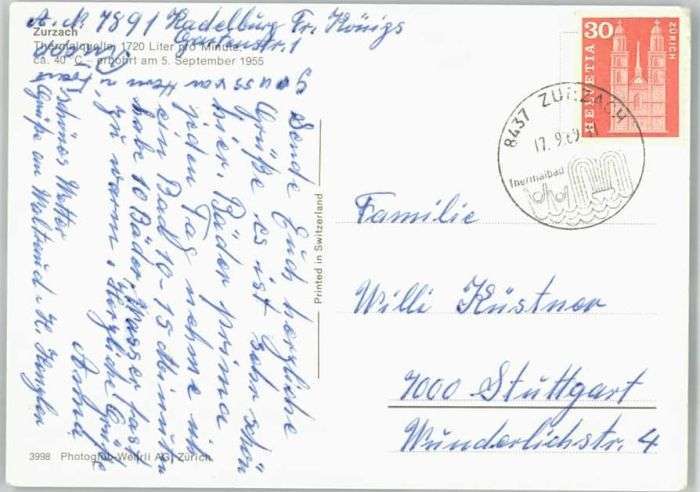 A. K. 7891 Kadelburg Fr. Königs
Gartenstr. 1
Zurzach
Thermalquelle, 1720 Liter pro Minute,
ca. 40° C – erbohrt am 5. September 1955
Sende Euch herzliche
Grüße es ist sehr schön
hier. Bäder prima
jeden Tag nehme ich
ein Bad 10-15 Minuten
habe 10 Bäder, Wasser fast
zu warm. Herzliche Grüße
Anna
schönes Wetter
Grüße an Waltraud u. H.
Gruss von Herrn u. Frau
Printed in Switzerland
3998 Photoglob-Wehrli AG, Zürich
30
HELVETIA
ZÜRICH
8437 ZURZACH
17. 9. 69
Thermalbad
Familie
Willi Küstner
7000 Stuttgart
Wunderlichstr. 4